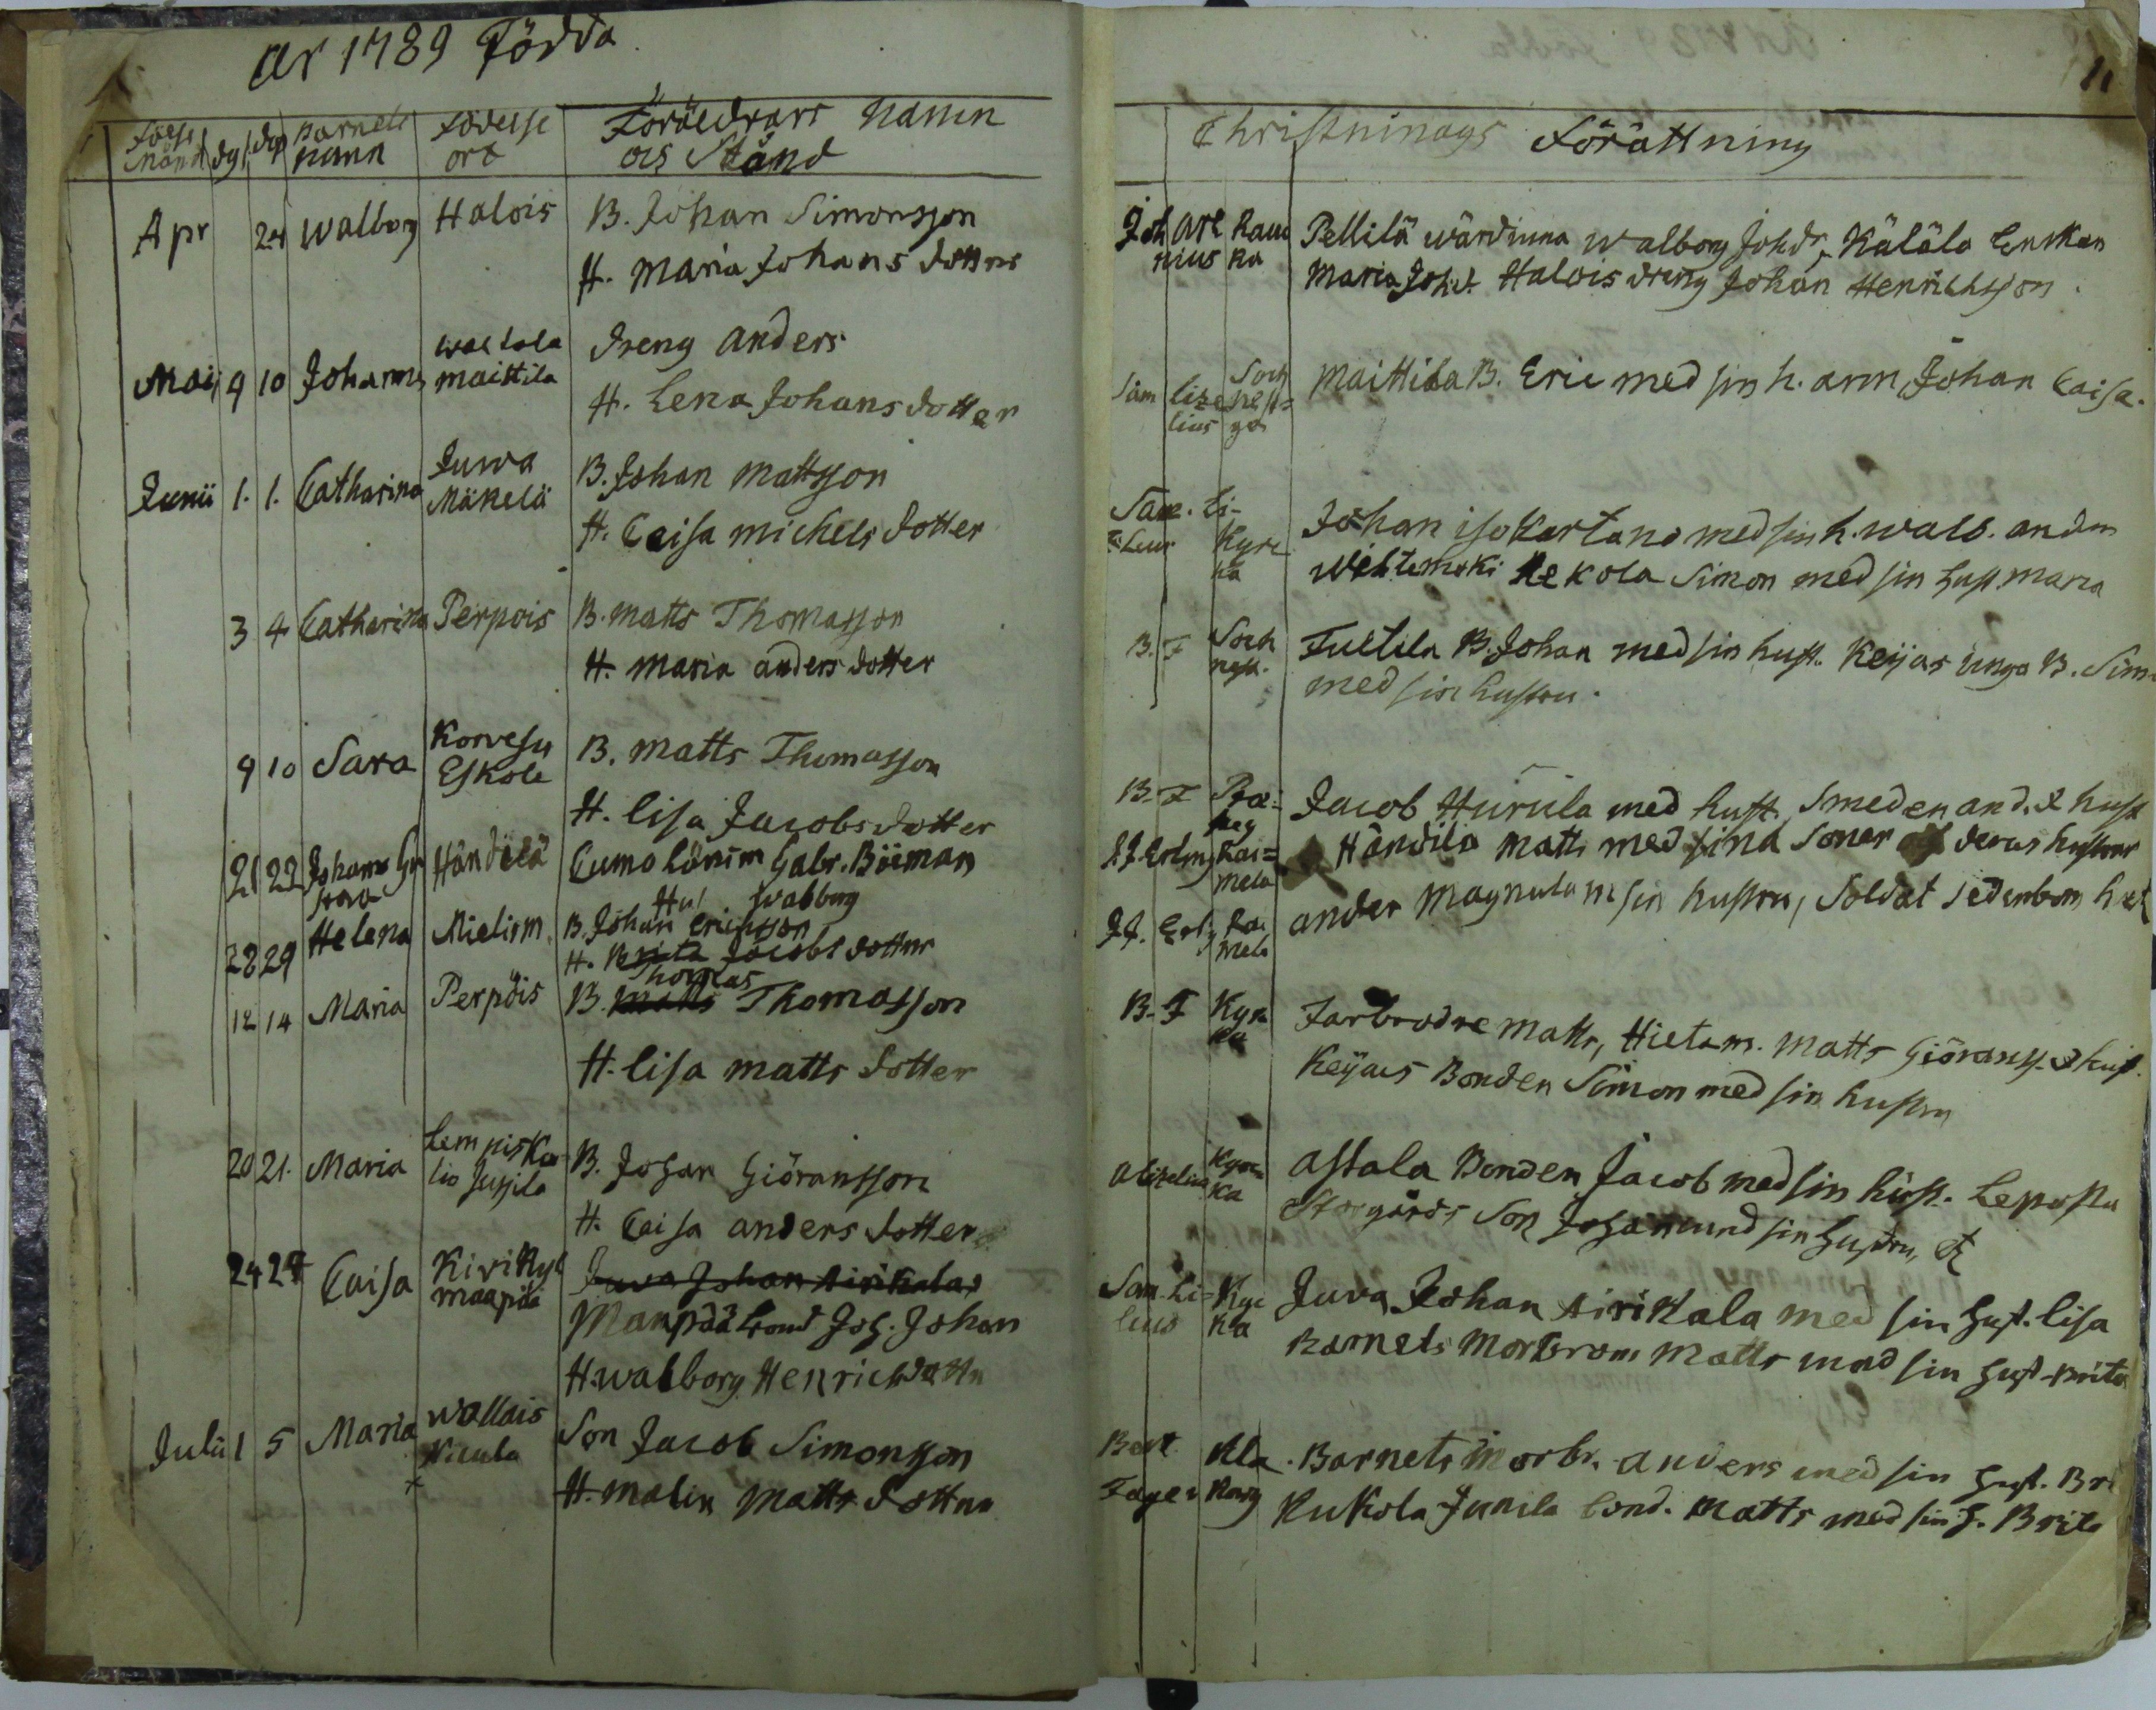 År 1789 Födda
Födse Månd dgl. dop Barnets namn Födelse ort Föräldrars namn och Stånd
Apr 24 Walborg Halois B. Johan Simonsson
H. Maria Johans dotter
Maij 9 10 Johannes maittila Dreng Anders
H. Lena Johans dotter
Junii 1. 1. Catharina Juwa Mäkelä B. Johan Mattsson
H. Caisa Michels dotter
3 4 Catharina Perpois B. Matts Thomasson
H. Maria Anders dotter
9 10 Sara Korvesu Eskola B. Matts Thomasson
H. Lisa Jacobs dotter
21 22 Johanna Händilä Gabr. Böeman
Hu Walborg
28 29 Helena Mielism. B. Johan Ericsson
H. Brita Jacobs dotter
Thomas
12 14 Maria Perpöis B. Matts Thomasson
H. Lisa Matts dotter
20 21. Maria B. Johan Giöransson
H. Caisa Anders dotter
24 27 Caisa Kirikyl maapää Juva Johan Sirikala
Maapää bond Joh. Johan
H. Walborg Henrichdottr
Julii 1 5 Maria Wallais Son Jacob Simonsson
H. Malin Matts dotter
11
Christninags Förättning
Joh Are nius Rau ka Pellilä wärdinna Walborg Johdr, Käläla Enckan
Maria Joh.d. Halois dreng Johan Henrichsson
Sam lize lius Maittila B. Eric med sin h. ann, Johan Caisa.
Kyrc ka Johan iso Kartano med sin h. Walb.
Rekola Simon med sin hust. Maria
B. F Soch Tultila B. Johan med sin hust. Keijas unga B. Sim
med sin hustru.
B. F Jacob Hurula med hust. Smeden and. & hust
Händila Matts med sina Söner och deras hustrur
ander Magnula m sin hustru, Soldat Sedenbom
B. F Kyr ka Farbrodre Matts, Hietam. Matts Giöranss. & hust.
Keijars Bonden Simon med sin hustru
Kyrc ka Astala Bonden Jacob med sin hust. Leposta
Storgårds Son Johan med sin hustru,
Sam. Li= lius Kyr ka Juva Johan Sirikala med sin hust. Lisa
Barnets Morbrors Matts med sin hust. Brita
Bert Barnets morbr. Anders med sin hust. Br
Kukola Junila bond. Matts med sin h. Brita